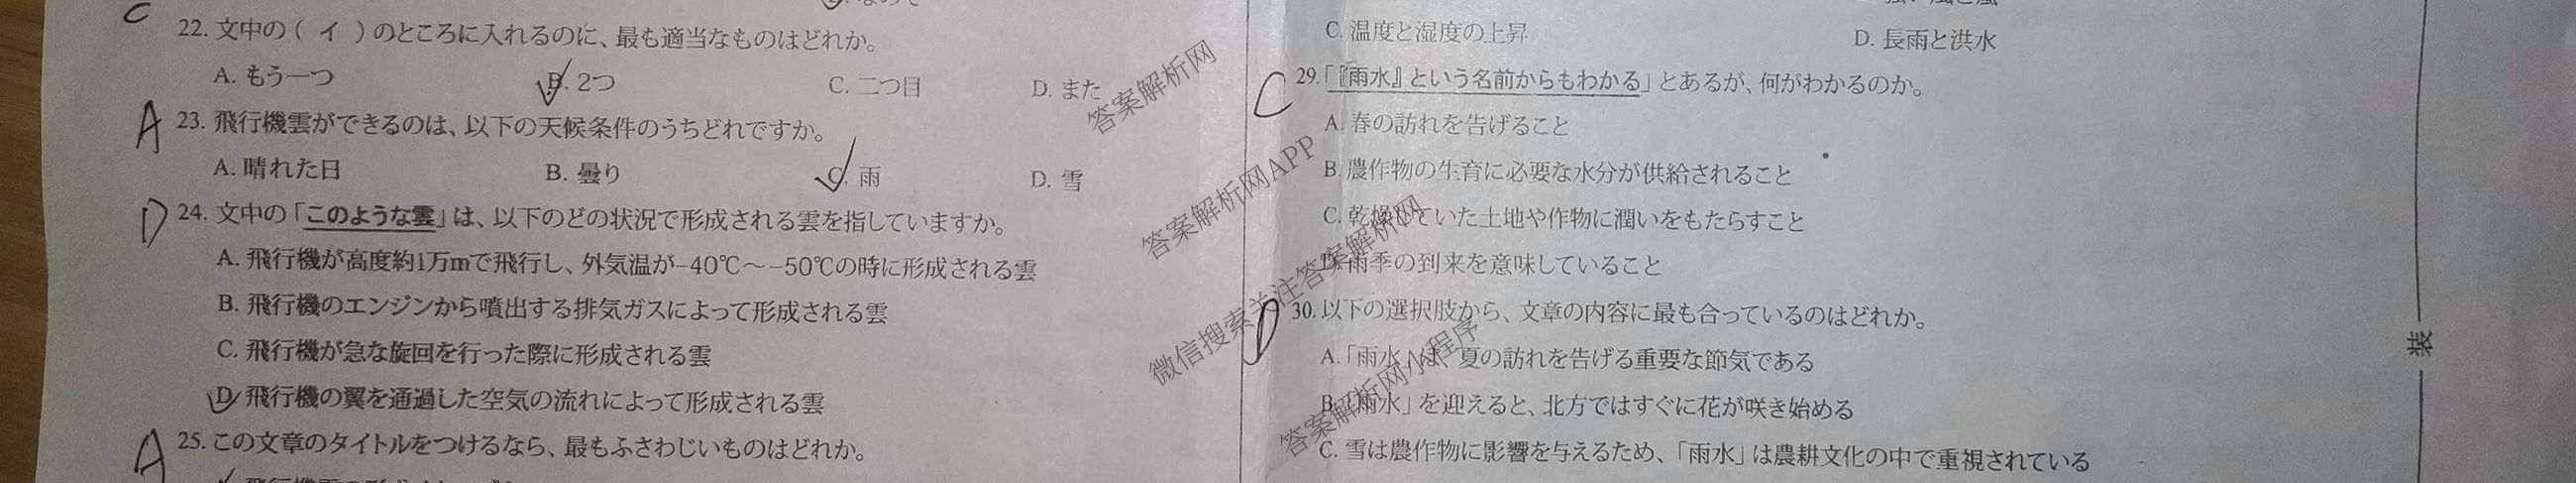 C
22. 文中の（ イ ）のところに入れるのに、最も適当なものはどれか。
A. もう一つ B. 2つ C. 二つ目 D. また
A 23. 飛行機雲ができるのは、以下の天候条件のうちどれですか。
A. 晴れた日 B. 曇り C. 雨 D. 雪
D 24. 文中の「このような雲」は、以下のどの状況で形成される雲を指していますか。
A. 飛行機が高度約1万mで飛行し、外気温が-40℃～-50℃の時に形成される雲
B. 飛行機のエンジンから噴出する排気ガスによって形成される雲
C. 飛行機が急な旋回を行った際に形成される雲
D. 飛行機の翼を通過した空気の流れによって形成される雲
A 25. この文章のタイトルをつけるなら、最もふさわじいものはどれか。
C. 温度と湿度の上昇 D. 長雨と洪水
C 29.「『雨水』という名前からもわかる」とあるが、何がわかるのか。
A. 春の訪れを告げること
B. 農作物の生育に必要な水分が供給されること
C. 乾燥していた土地や作物に潤いをもたらすこと
D. 雨季の到来を意味していること
D 30. 以下の選択肢から、文章の内容に最も合っているのはどれか。
A.「雨水」は、夏の訪れを告げる重要な節気である
B.「雨水」を迎えると、北方ではすぐに花が咲き始める
C. 雪は農作物に影響を与えるため、「雨水」は農耕文化の中で重視されている
装
答案解析网
答案解析网APP
微信搜索关注答案解析网
答案解析网小程序